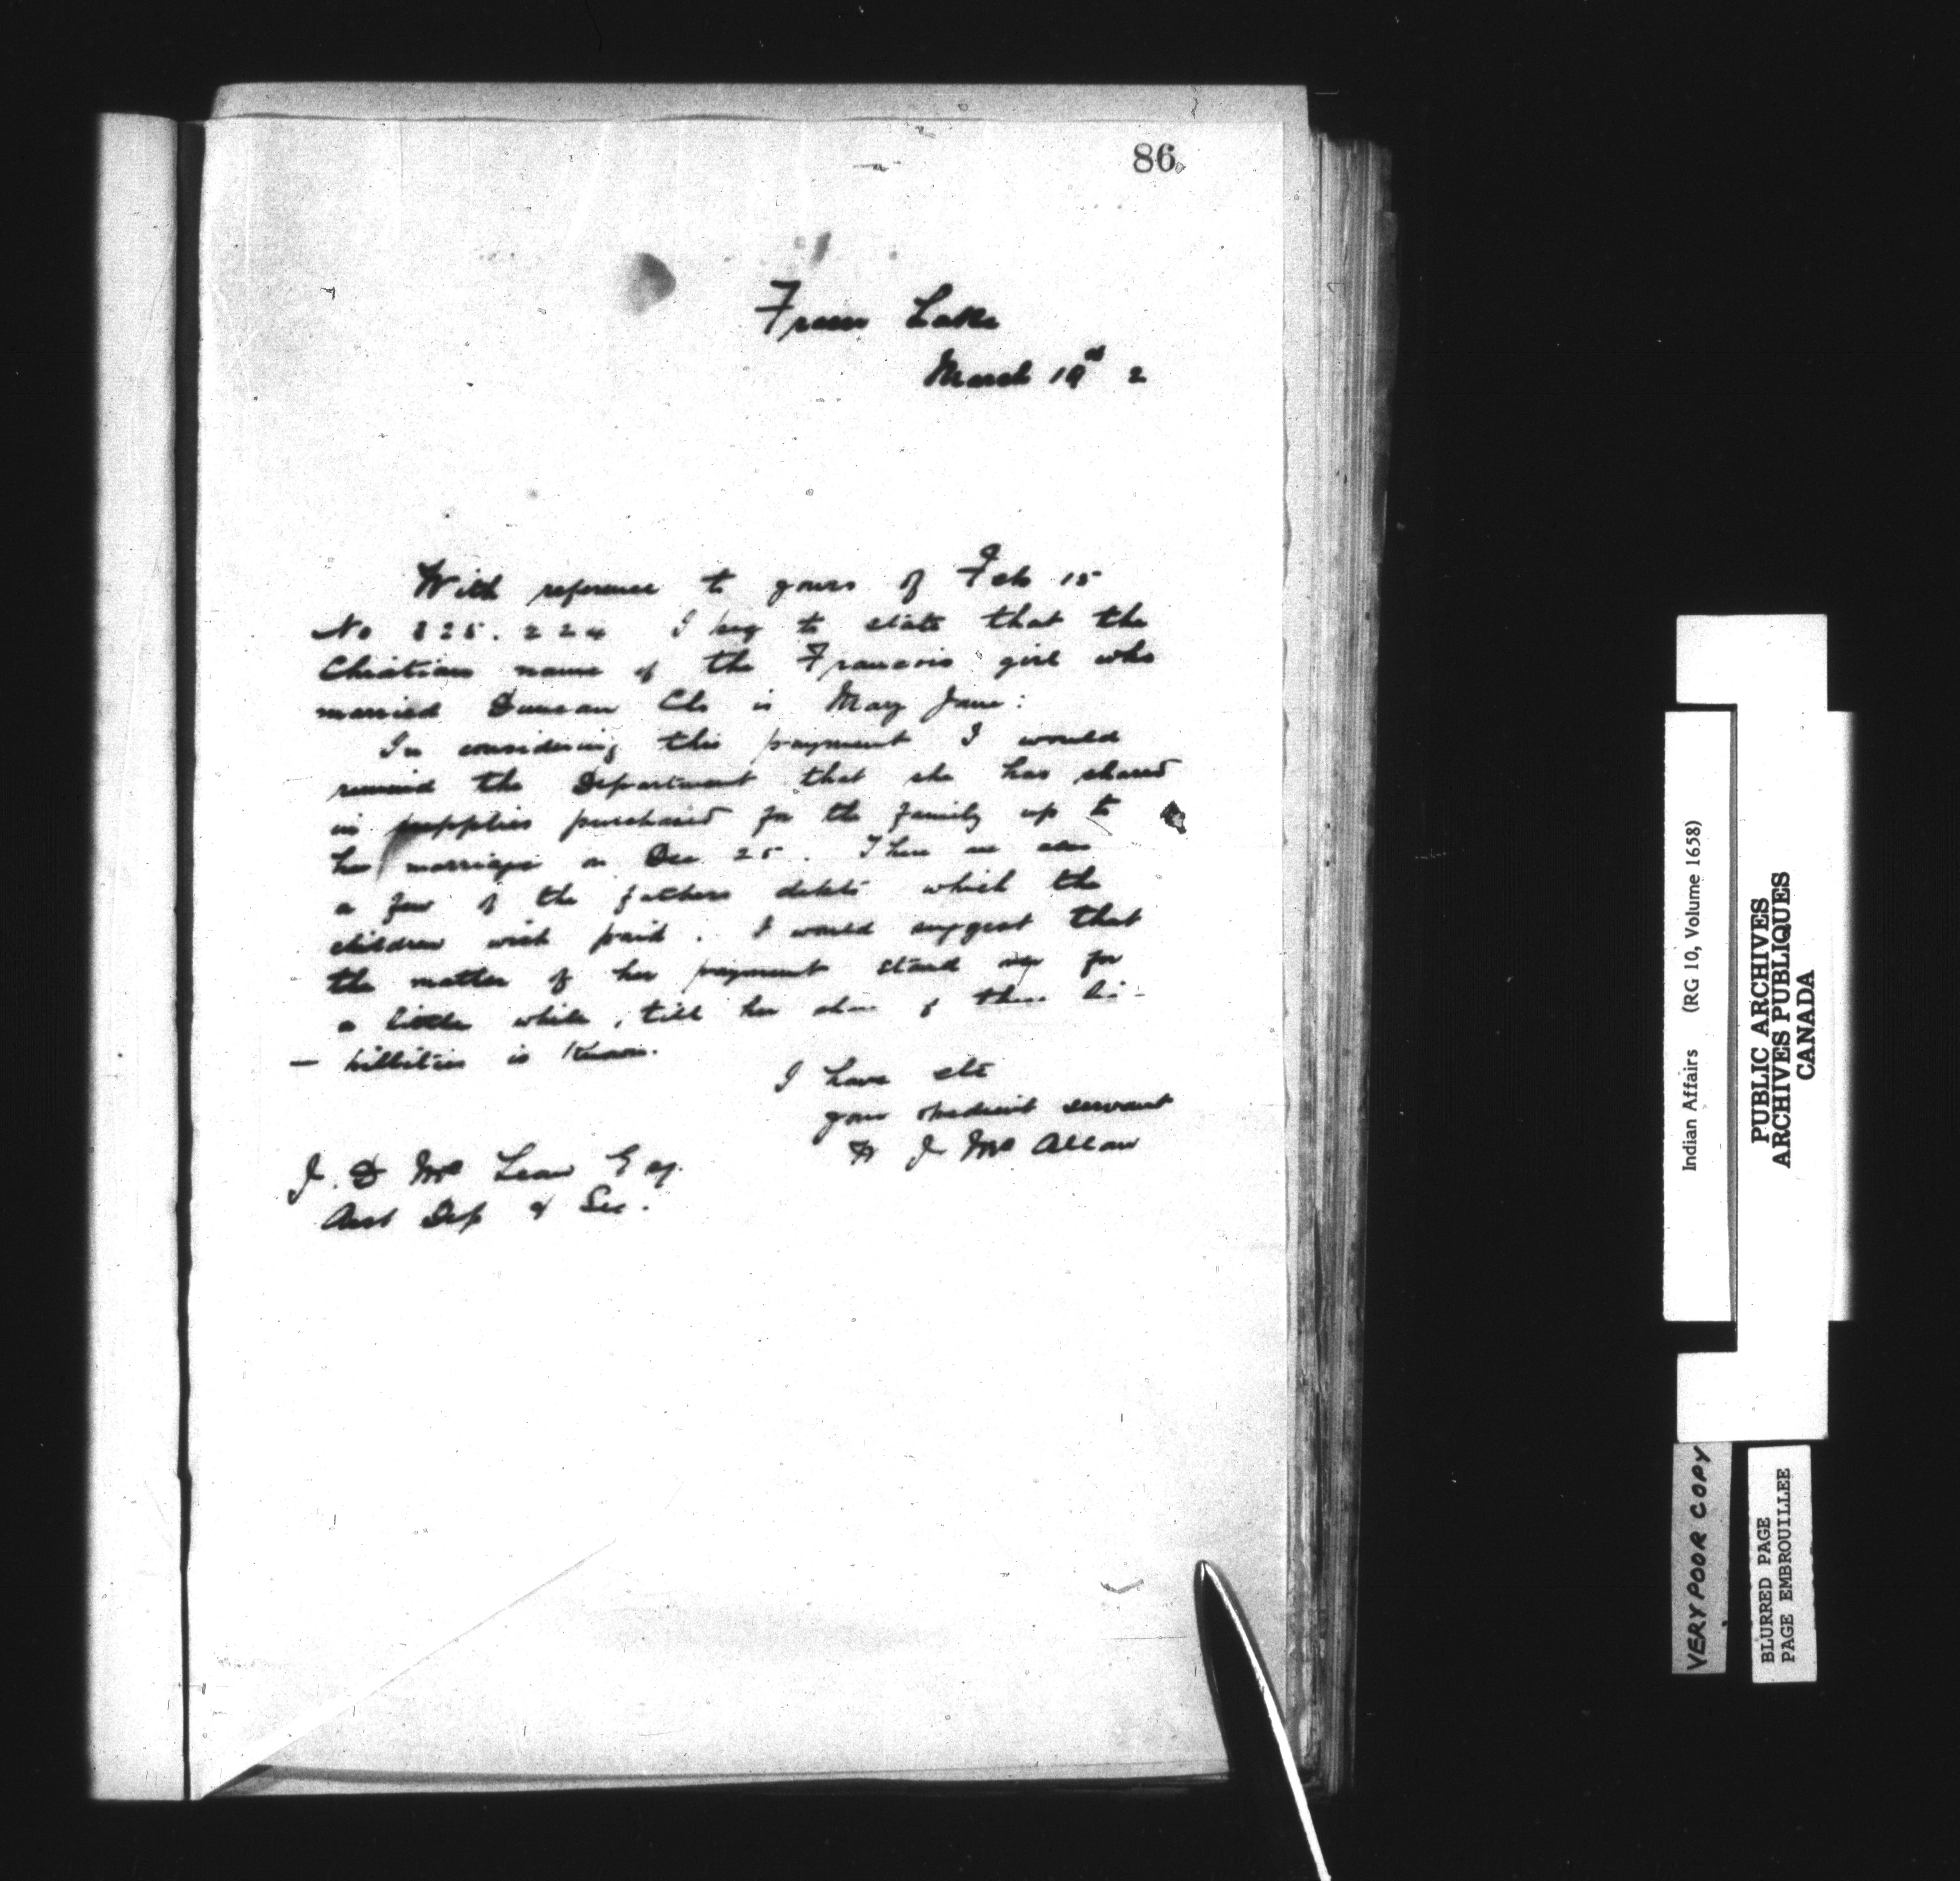 86
Lake
March 19th 2
With reference to yours of Feb 15
No 225.224 I beg to state that the
Christian name of the Francois girl who
married Duncan Clo is Mary Jane:
In considering this payment I would
remind the Department that she has shared
in supplies purchased for the family up to
her marriage on Dec 25. There are also
a few of the fathers debts which the
children wish paid. I would suggest that
the matter of her payment stand over for
a little while, till her share of these lia-
- bilities is known.
I have etc
your obedient servant
J Mc Allan
J. D Mc Lean Esq.
Asst Dep & Sec.
Indian Affairs (RG 10, Volume 1658)
PUBLIC ARCHIVES
ARCHIVES PUBLIQUES
CANADA
VERY POOR COPY
BLURRED PAGE
PAGE EMBROUILLEE